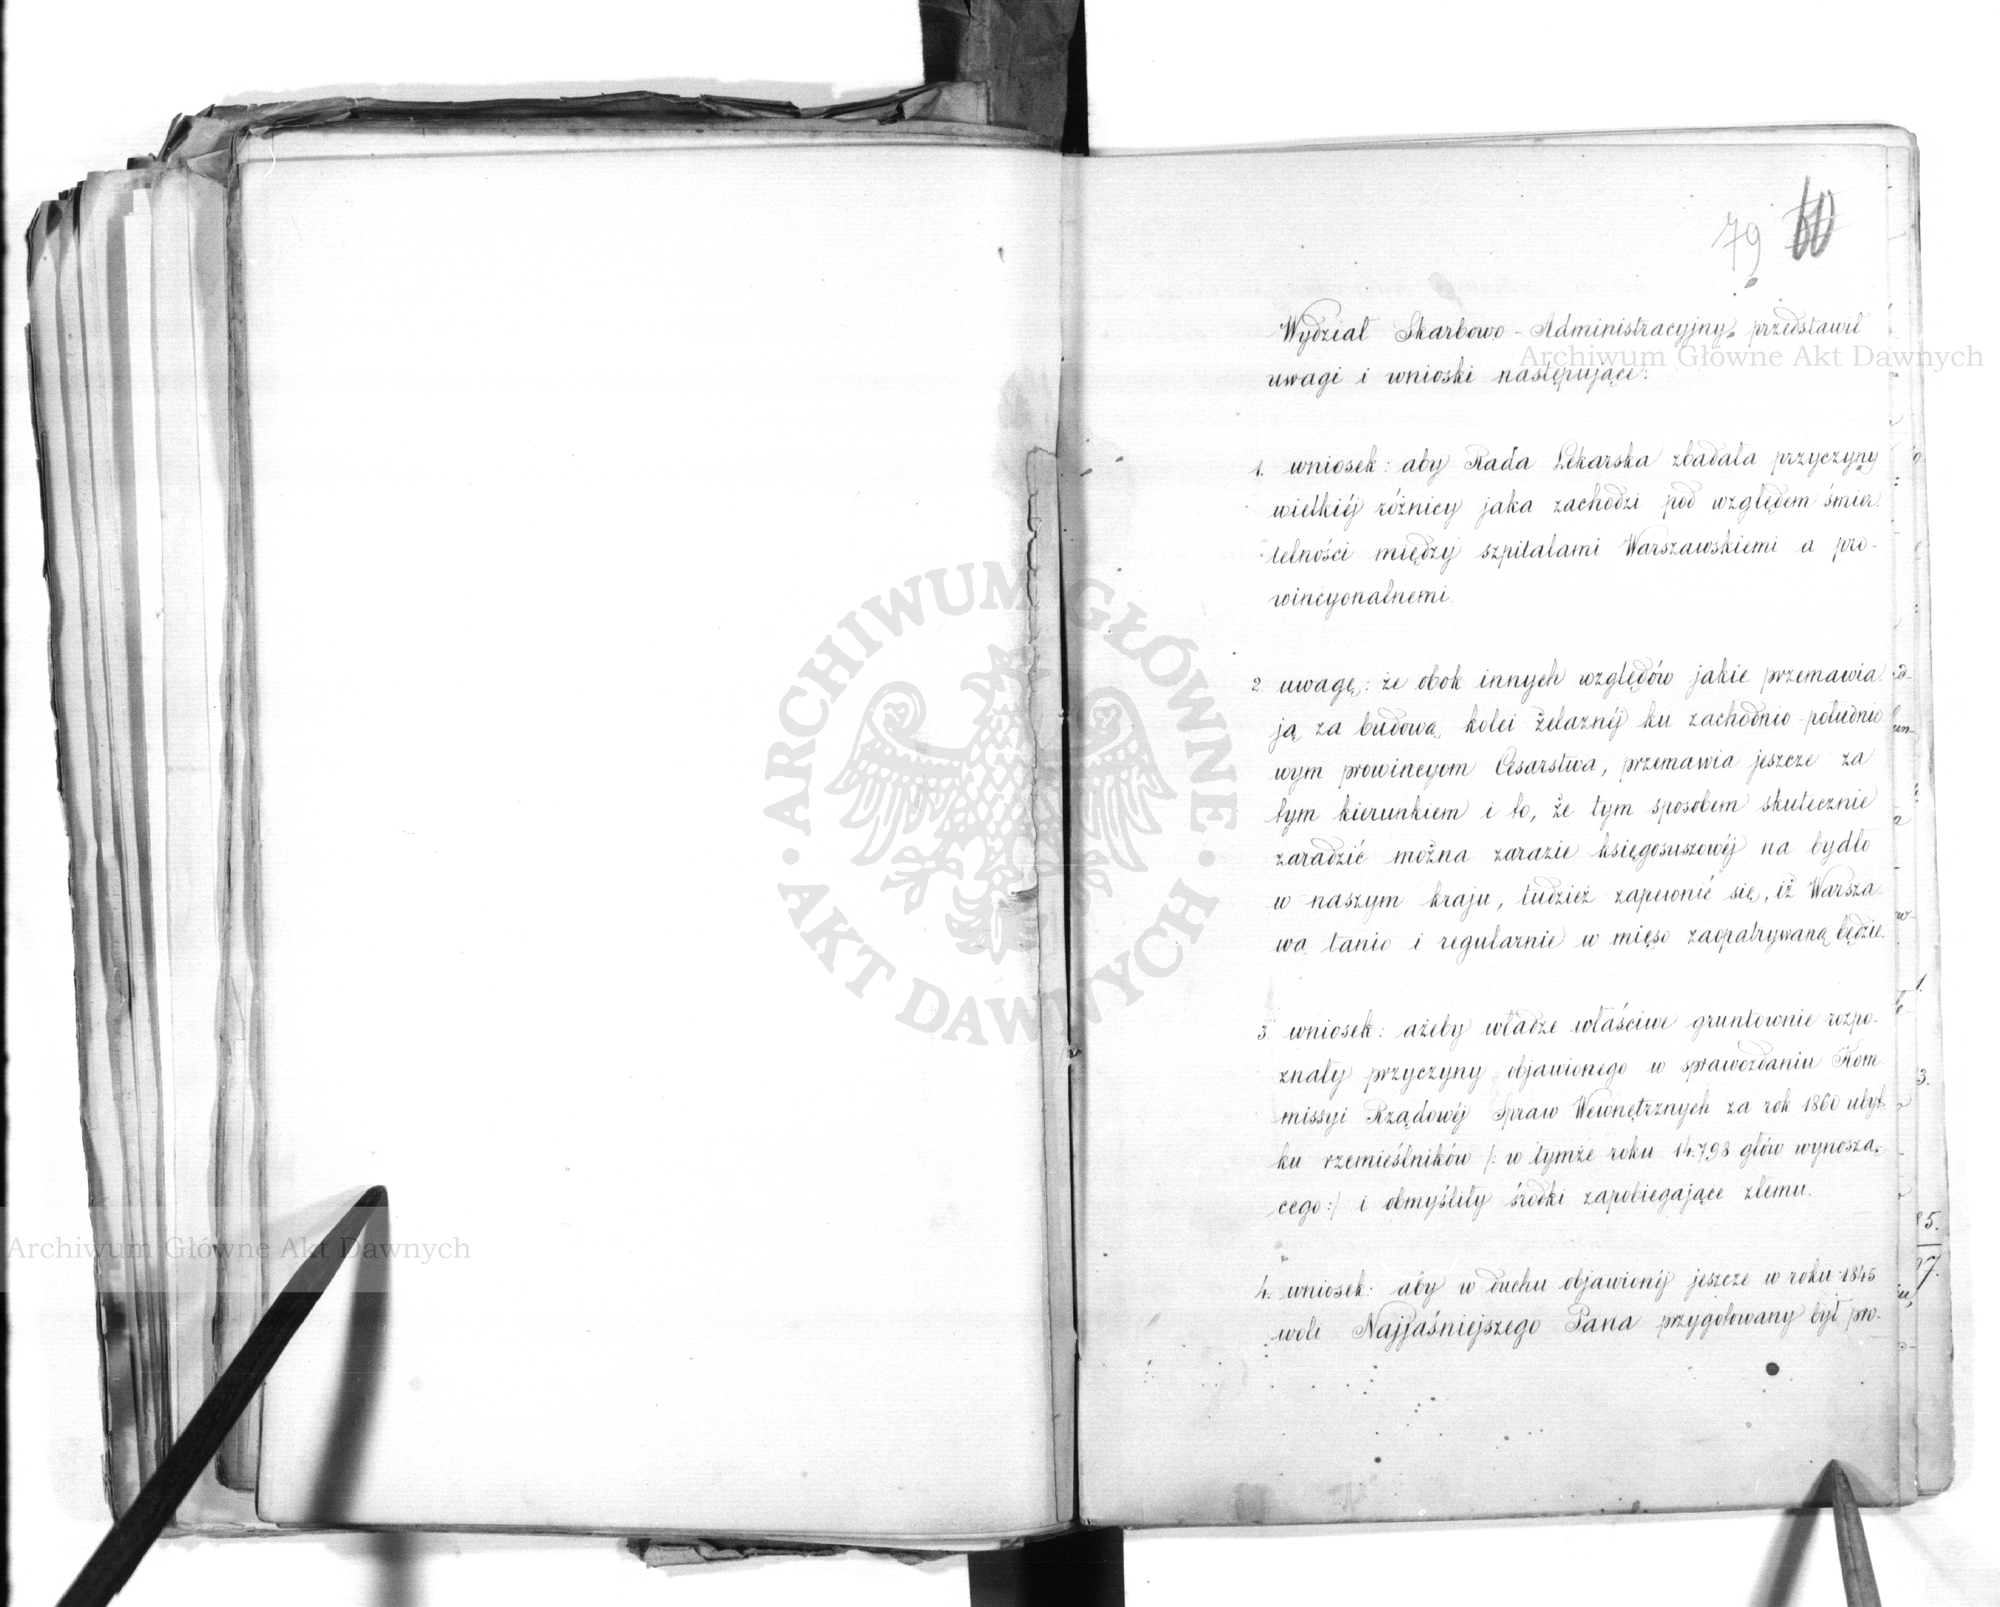 79 60
Wydział Skarbowo-Administracyjny przedstawił
Archiwum Główne Akt Dawnych
uwagi i wnioski następujące:
1. wniosek: aby Rada Lekarska zbadała przyczyny
wielkiéj różnicy jaka zachodzi pod względem śmier-
telności między szpitalami Warszawskiemi a pro-
wincyonalnemi.
2. uwagę: że obok innych względów jakie przemawia
ją za budową kolei żelaznéj ku zachodnio-południo
wym prowincyom Cesarstwa, przemawia jeszcze za
tym kierunkiem i to, że tym sposobem skutecznie
zaradzić można zarazie księgosuszowéj na bydło
w naszym kraju, tudzież zapewnić się, iż Warsza-
wa tanio i regularnie w mięso zaopatrywaną będzie.
3 wniosek: ażeby władze właściwe gruntownie rozpo-
znały przyczyny objawionego w sprawozdaniu Kom
missyi Rządowéj Spraw Wewnętrznych za rok 1860 ubyt-
ku rzemieślników /: w tymże roku 14.798 głów wynoszą-
cego:/ i obmyśliły środki zapobiegające złemu.
4. wniosek: aby w duchu objawionéj jeszcze w roku 1845
woli Najjaśniejszego Pana przygotowany był pro-
ARCHIWUM GŁÓWNE
AKT DAWNYCH
Archiwum Główne Akt Dawnych